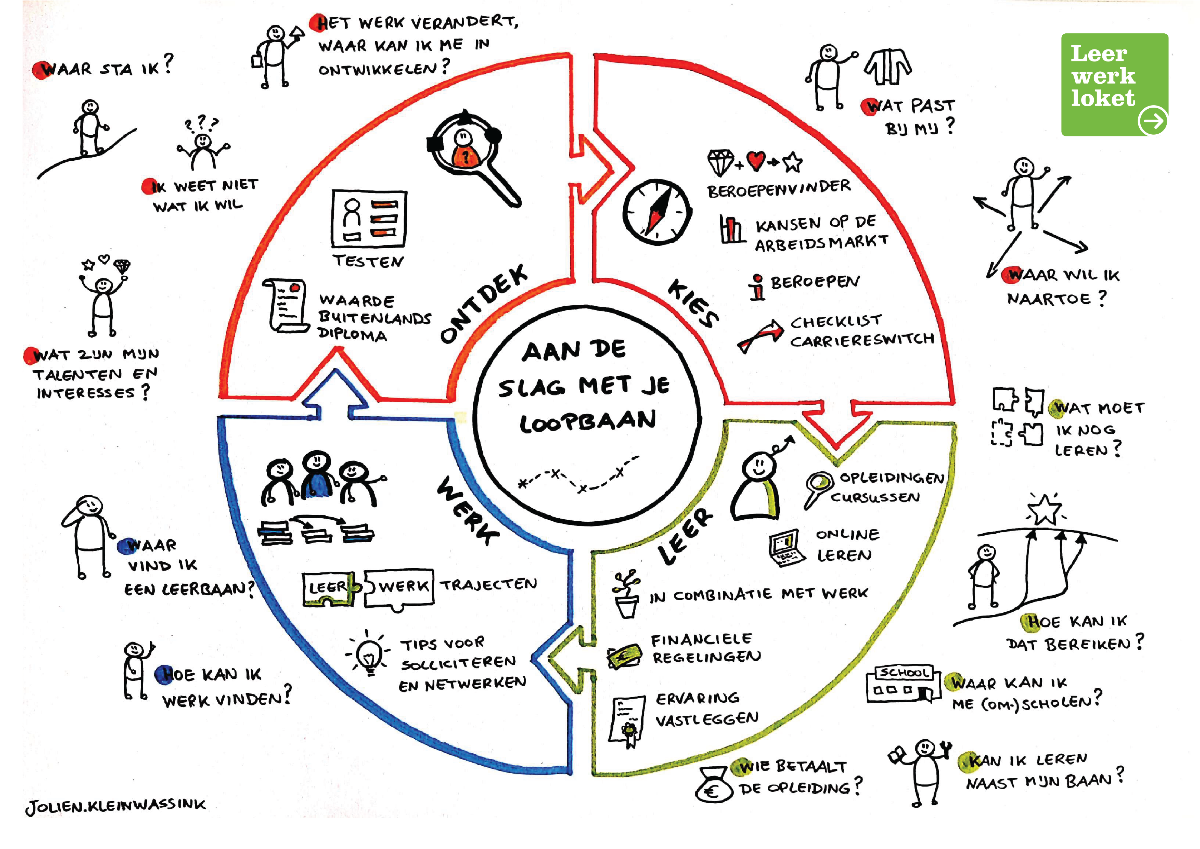 HET WERK VERANDERT,
WAAR KAN IK ME IN
ONTWIKKELEN?
WAAR STA IK?
???
IK WEET NIET
WAT IK WIL
WAT ZIJN MIJN
TALENTEN EN
INTERESSES?
?
TESTEN
WAARDE
BUITENLANDS
DIPLOMA
ONTDEK
WAT PAST
BIJ MIJ?
Leer
werk
loket
WAAR WIL IK
NAARTOE?
BEROEPENVINDER
KANSEN OP DE
ARBEIDSMARKT
BEROEPEN
CHECKLIST
CARRIERESWITCH
KIES
AAN DE
SLAG MET JE
LOOPBAAN
WAT MOET
IK NOG
LEREN?
HOE KAN IK
DAT BEREIKEN?
SCHOOL
WAAR KAN IK
ME (OM-)SCHOLEN?
KAN IK LEREN
NAAST MIJN BAAN?
WIE BETAALT
DE OPLEIDING?
€
LEER
OPLEIDINGEN
CURSUSSEN
ONLINE
LEREN
IN COMBINATIE MET WERK
€
FINANCIELE
REGELINGEN
ERVARING
VASTLEGGEN
WERK
LEER WERK TRAJECTEN
TIPS VOOR
SOLLICITEREN
EN NETWERKEN
WAAR
VIND IK
EEN LEERBAAN?
HOE KAN IK
WERK VINDEN?
JOLIEN.KLEINWASSINK